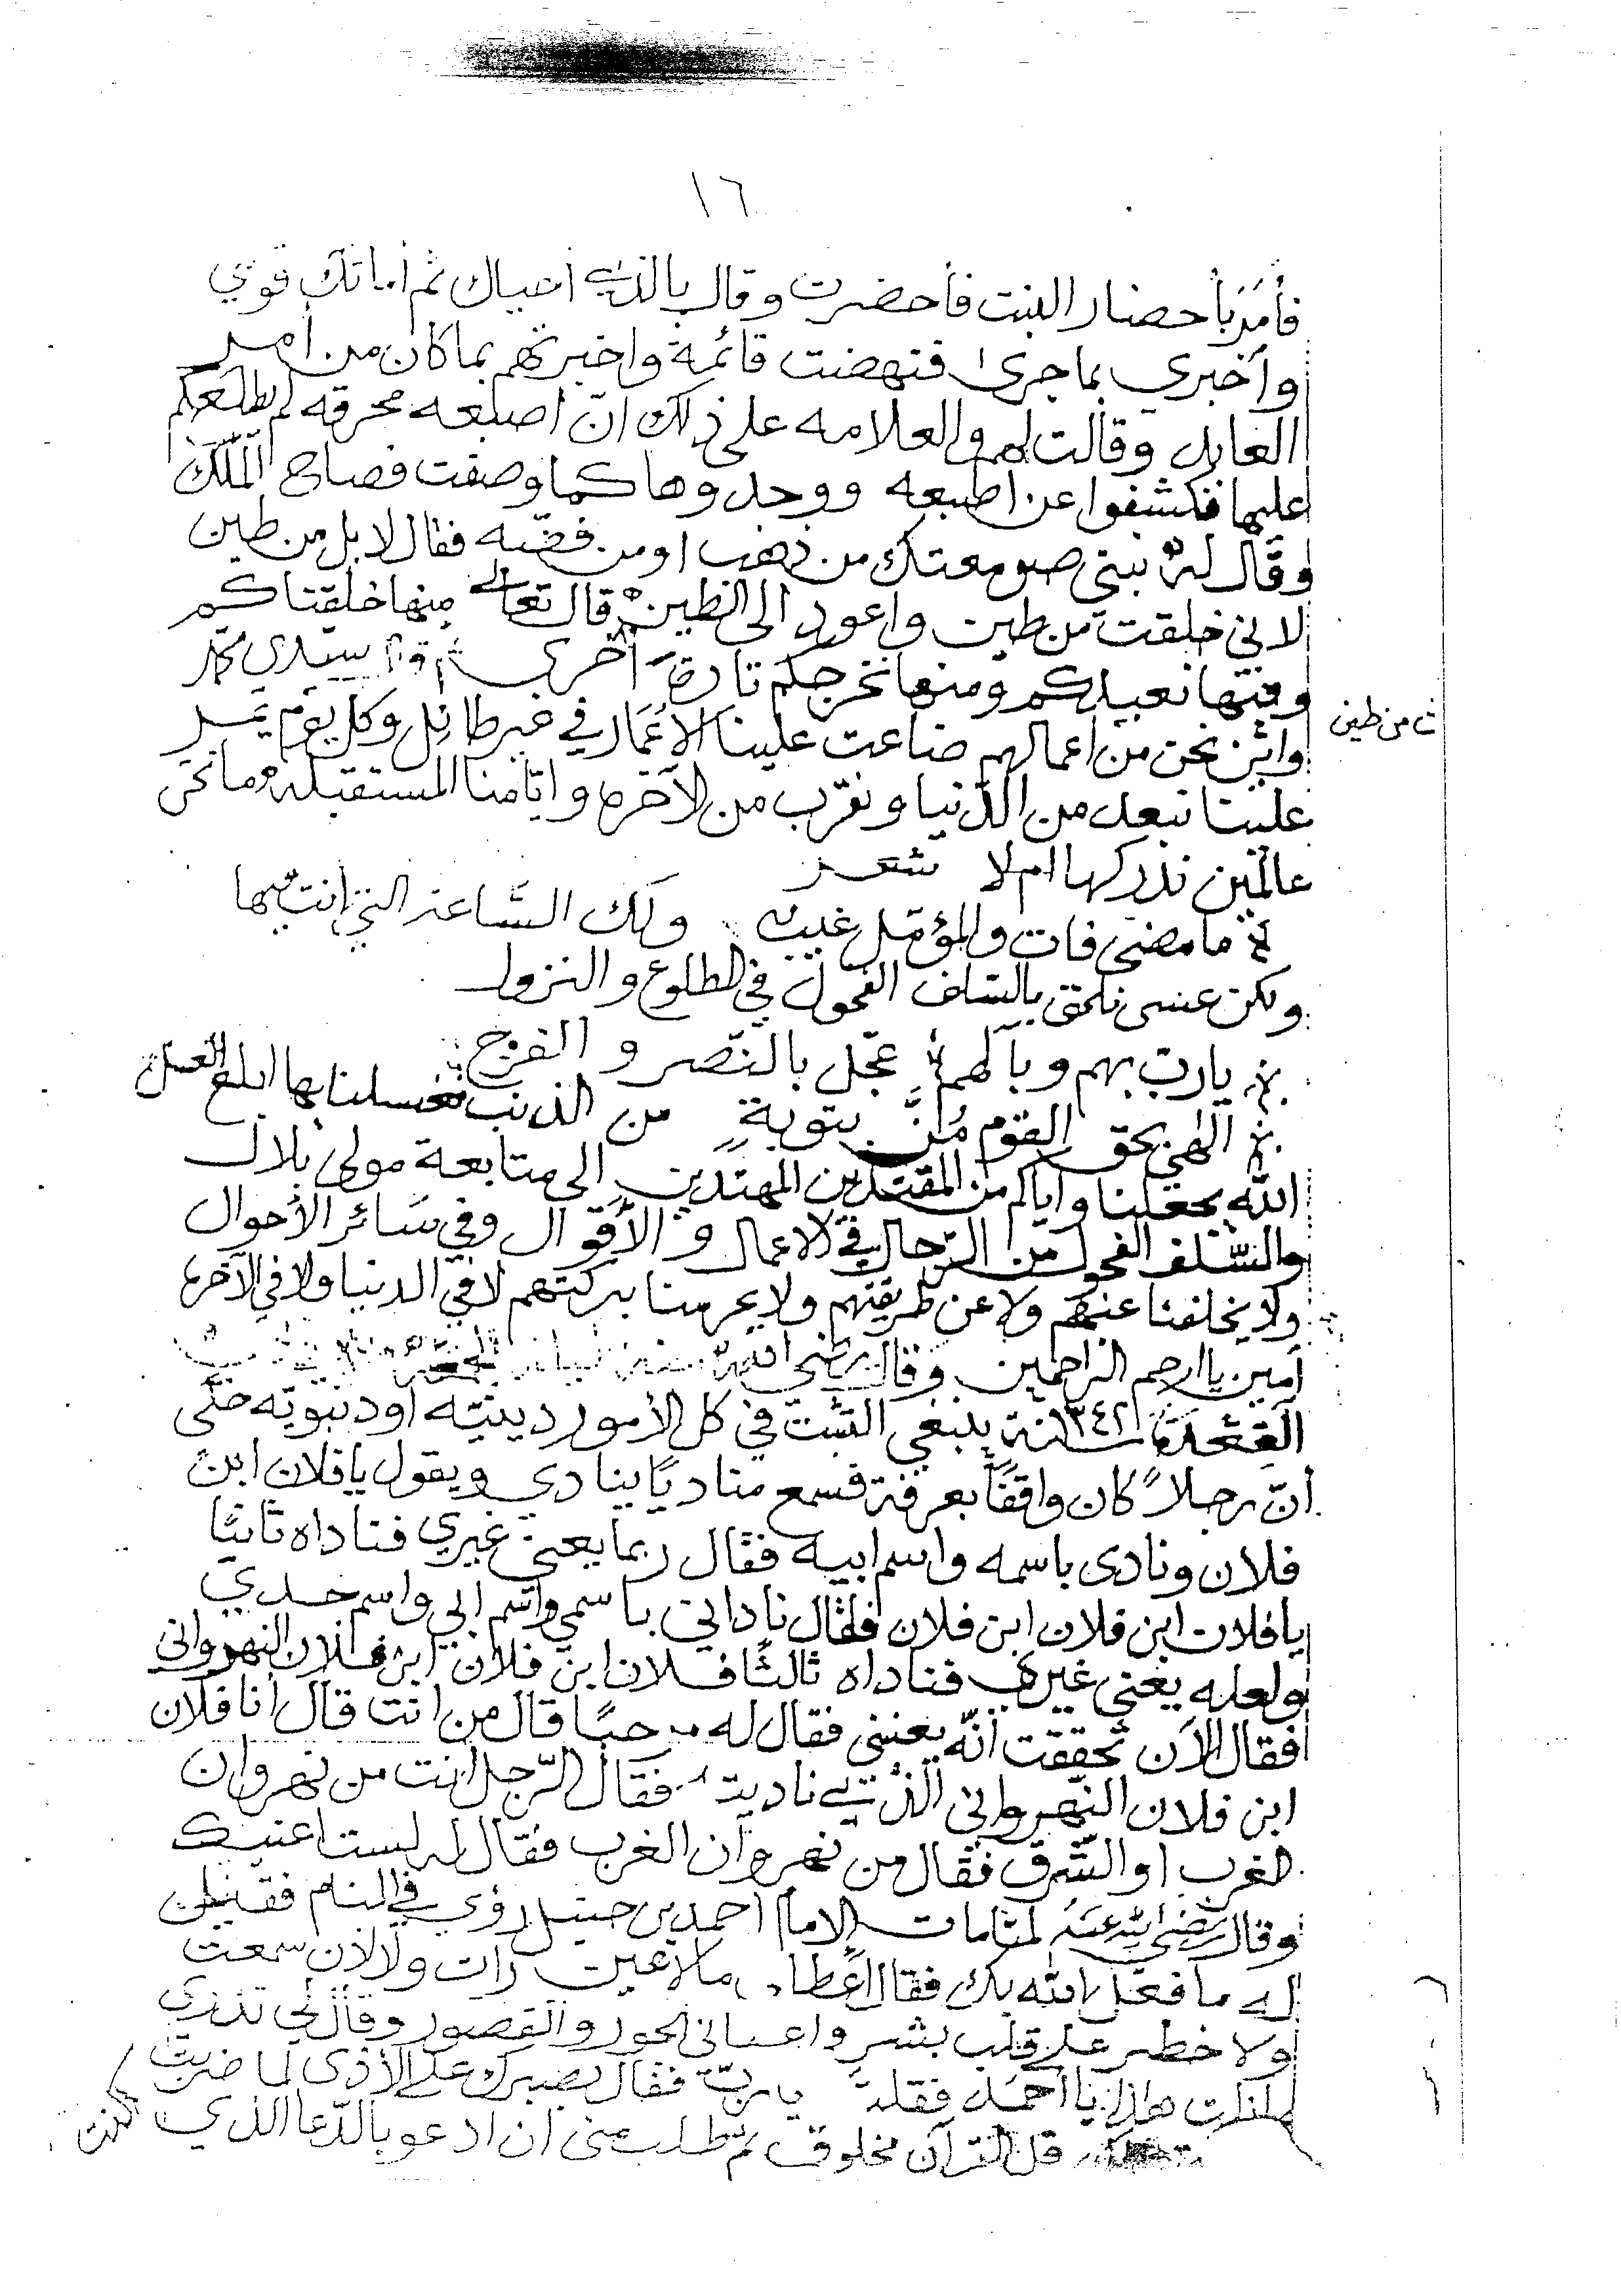 ١٦
فأمر بأحضار البنت فأحضرت وقال بالذي احياك ثم اماتك قومي
وأخبري بما جرى فنهضت قائمة واخبرتهم بما كان من أمر
العابد وقالت لهم والعلامه على ذلك انّ اصبعه محرقه لم يطلعكم
عليها فكشفوا عن اصبعه ووجدوها كما وصفت فصاح الملك
وقال له نبني صومعتك من ذهب او من فضّه فقال لا بل من طين
لاني خلقت من طين واعود الى الطين قال تعالى منها خلقناكم
وفيها نعيدكم ومنها نخرجكم تارة أخرى سيدي محمد
ث من طين
واين نحن من اعمالهم ضاعت علينا الأعمار في غير طائل وكل يوم يمر
علينا نبعد من الدّنيا ونقرّب من الآخره وايّامنا المستقبله ما نحن
عالمين ندركها ام لا شعر
ما مضى فات والمؤمّل غيب ولك السّاعة التي انت فيها
ولكن عسى نلحق بالسّلف الفحول في الطلوع والنزول
يارب بهم وبآلهم عجّل بالنّصر والفرج
الهي بحق القوم مُنَّ بتوبةٍ من الذنب تغسلنا بها ابلغ الغسل
اللّه يجعلنا واياكم من المقتدين المهتدين الى متابعة مولى بلال
والسّلف الفحول من الرّجال في الاعمال والأقوال وفي سائر الأحوال
ولا يخلفنا عنهم ولا عن طريقتهم ولا يحرمنا بركتهم لا في الدنيا ولا في الآخره
آمين يا ارحم الراحمين وقال رضي الله عنه
القعدة سنة ١٣٤٢ ينبغي التثبّت في كل الأمور دينيّه او دنيويّه حتّى
أنّ رجلاً كان واقفًا بعرفة فسمع مناديًا ينادي ويقول يا فلان ابن
فلان ونادى باسمه واسم ابيه فقال ربما يعني غيري فناداه ثانيًا
يا فلان ابن فلان ابن فلان فقال ناداني باسمي واسم ابي واسم جدي
ولعله يعني غيري فناداه ثالثًا فلان ابن فلان ابن فلان النهرواني
فقال الآن تحققت أنّه يعنني فقال له مرحبًا قال من انت قال أنا فلان
ابن فلان النّهرواني الّذي ناديت فقال الرّجل انت من نهروان
الغرب او الشّرق فقال من نهروان الغرب فقال له لست اعنيك
وقال رضي الله عنه لمّا مات الامام احمد بن حنبل رؤي في المنام فقيل
له ما فعل الله بك فقال اعطاني ما لا عين رأت ولا اذن سمعت
ولا خطر على قلب بشر واعطاني الحور والقصور وقال لي تدري
لما نلت هذا يا أحمد فقلت يا ربّ فقال بصبرك على الأذى لما ضربت
قل القرآن مخلوق ثم طلب منى ان ادعو بالدّعا الذي كنت